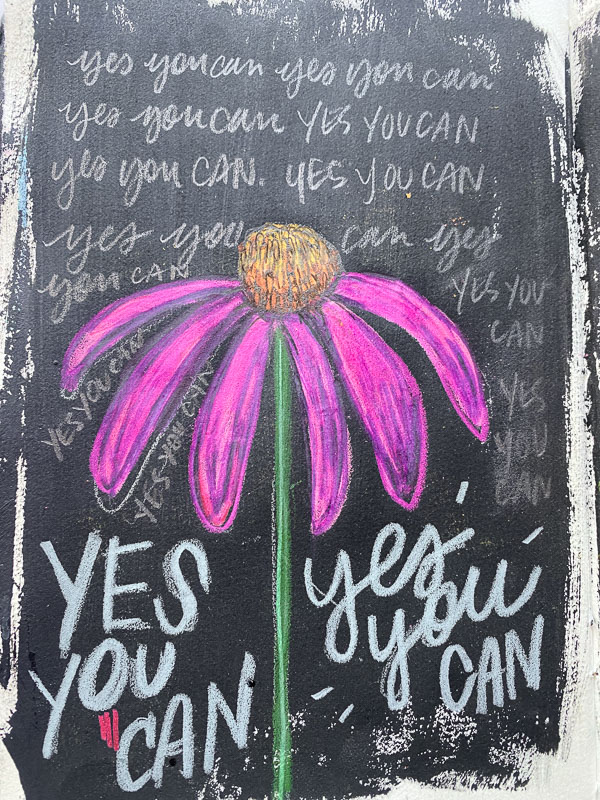 yes you can yes you can
yes you can YES YOU CAN
yes you CAN. YES YOU CAN
yes you can yes
you CAN
YES YOU
CAN
YES
YOU
CAN
YES YOU CAN
YES YOU CAN
YES
YOU
CAN
yes
you
CAN